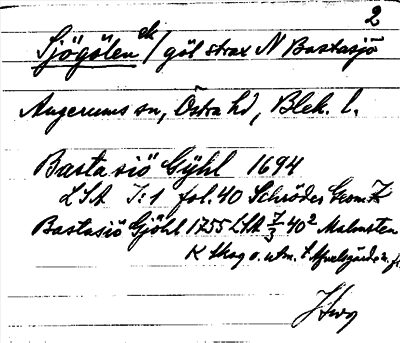 2
Sjögölen ek/ göl strax N Bastasjö
Augerums sn, Östra hd, Blek. l.
Basta siö Gyhl 1694
LSA I:1 fol. 40 Schröders Geom.
Bastasiö Gjöhl 1755 LSA 7/3 40² Malmsten
K Skog o. utm. t.